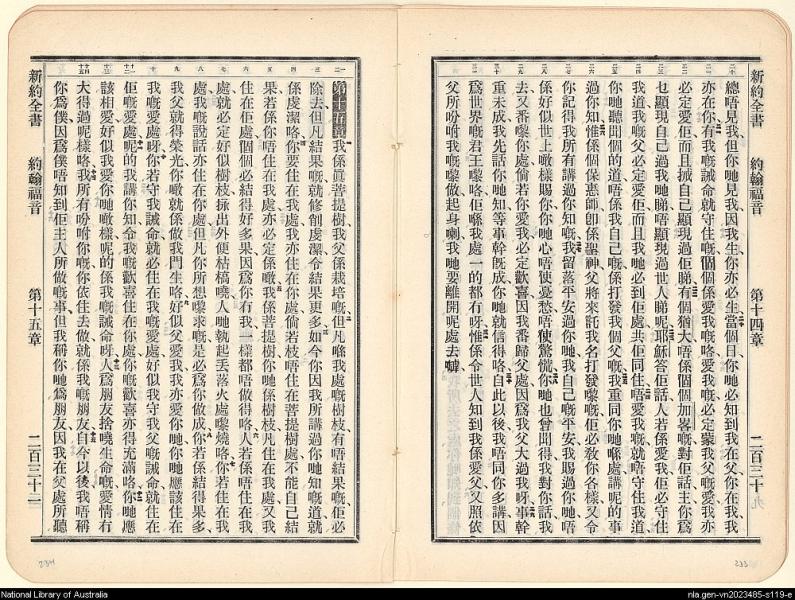 新約全書 約翰福音 第十四章 二百三十
總唔見我但你哋見我因我生你亦必生當個日你哋必知到我在父你在我我
亦在你有我嘅誡命就守住嘅個個係愛我嘅咯愛我嘅必定蒙我父嘅愛我亦
必定愛佢而且搣自己顯現過佢睇有個猶大唔係個個加畧嘅對佢話主你為
乜顯現自己過我哋睇唔顯現過世人睇呢耶穌答佢話人若係愛我佢必守住
我道嘅我父必定愛佢而且我哋必到佢處共佢同住唔愛我嘅就唔守住我道
你哋聽聞個的道唔係我自己嘅係打發我個父嘅我重同你哋喺處講呢的事
過你知惟係個保惠師即係聖神父將來託我名打發嚟嘅佢必敎你各樣又令
你記得我所有講過你知嘅我留落平安過你哋我自己嘅平安我賜過你哋唔
係好似世上噉樣賜你你哋心唔使憂愁唔使驚慌你哋也曾聞得我對你話我
去又番嚟你處倘若你愛我必定歡喜因我番歸父處因爲我父大過我呀事幹
重未成我先話你哋知等事幹旣成你哋就信得咯自此以後我唔同你多講因
爲世界嘅君王嚟咯佢喺我處一的都冇呀惟係令世人知到我係愛父又照依
父所吩咐我嘅嚟做起身喇我哋要離開呢處去罅
第十五章 我係眞菩提樹我父係栽培嘅但凡喺我處嘅樹枝有唔結果嘅佢必
除去但凡結果嘅就修削虔潔令結果更多如今你因我所講過你哋知嘅道就
係虔潔咯你要住在我處我亦住在你處倘若枝唔住在菩提樹處不能自己結
果若係你唔住在我處亦必定係噉我係菩提樹你哋係樹枝凡住在我處又我
住在佢處個個必結得好多果因爲你冇我一樣都唔做得咯人若係唔住在我
處就必定好似樹枝掭出外便枯槁嘵人哋執起丟落火處嚟燒咯你若住在我
處我嘅說話亦住在你處但凡你所想嚟求嘅是必爲你做成你若係結得果多
我父就得榮光你噉就係做我門生咯好似父愛我我亦愛你哋你哋應該住在
我嘅愛處呀你若守我誡命就必住在我嘅愛處好似我守我父嘅誡命就住在
佢嘅愛處呢的我講你知令我嘅歡喜住在你處你嘅歡喜亦得充滿咯你哋應
該相愛好似我愛你哋噉樣呢的係我嘅誡命呀人爲朋友捨嘵生命嘅愛情冇
大得過呢樣咯我所有吩咐你嘅你依住去做就係我嘅朋友自今以後我唔稱
你爲僕因爲僕唔知到佢主人所做嘅事但我稱你哋爲朋友因我在父處所聽
新約全書 約翰福音 第十五章 二百三十二
National Library of Australia
nla.gen-vn2023485-s119-e